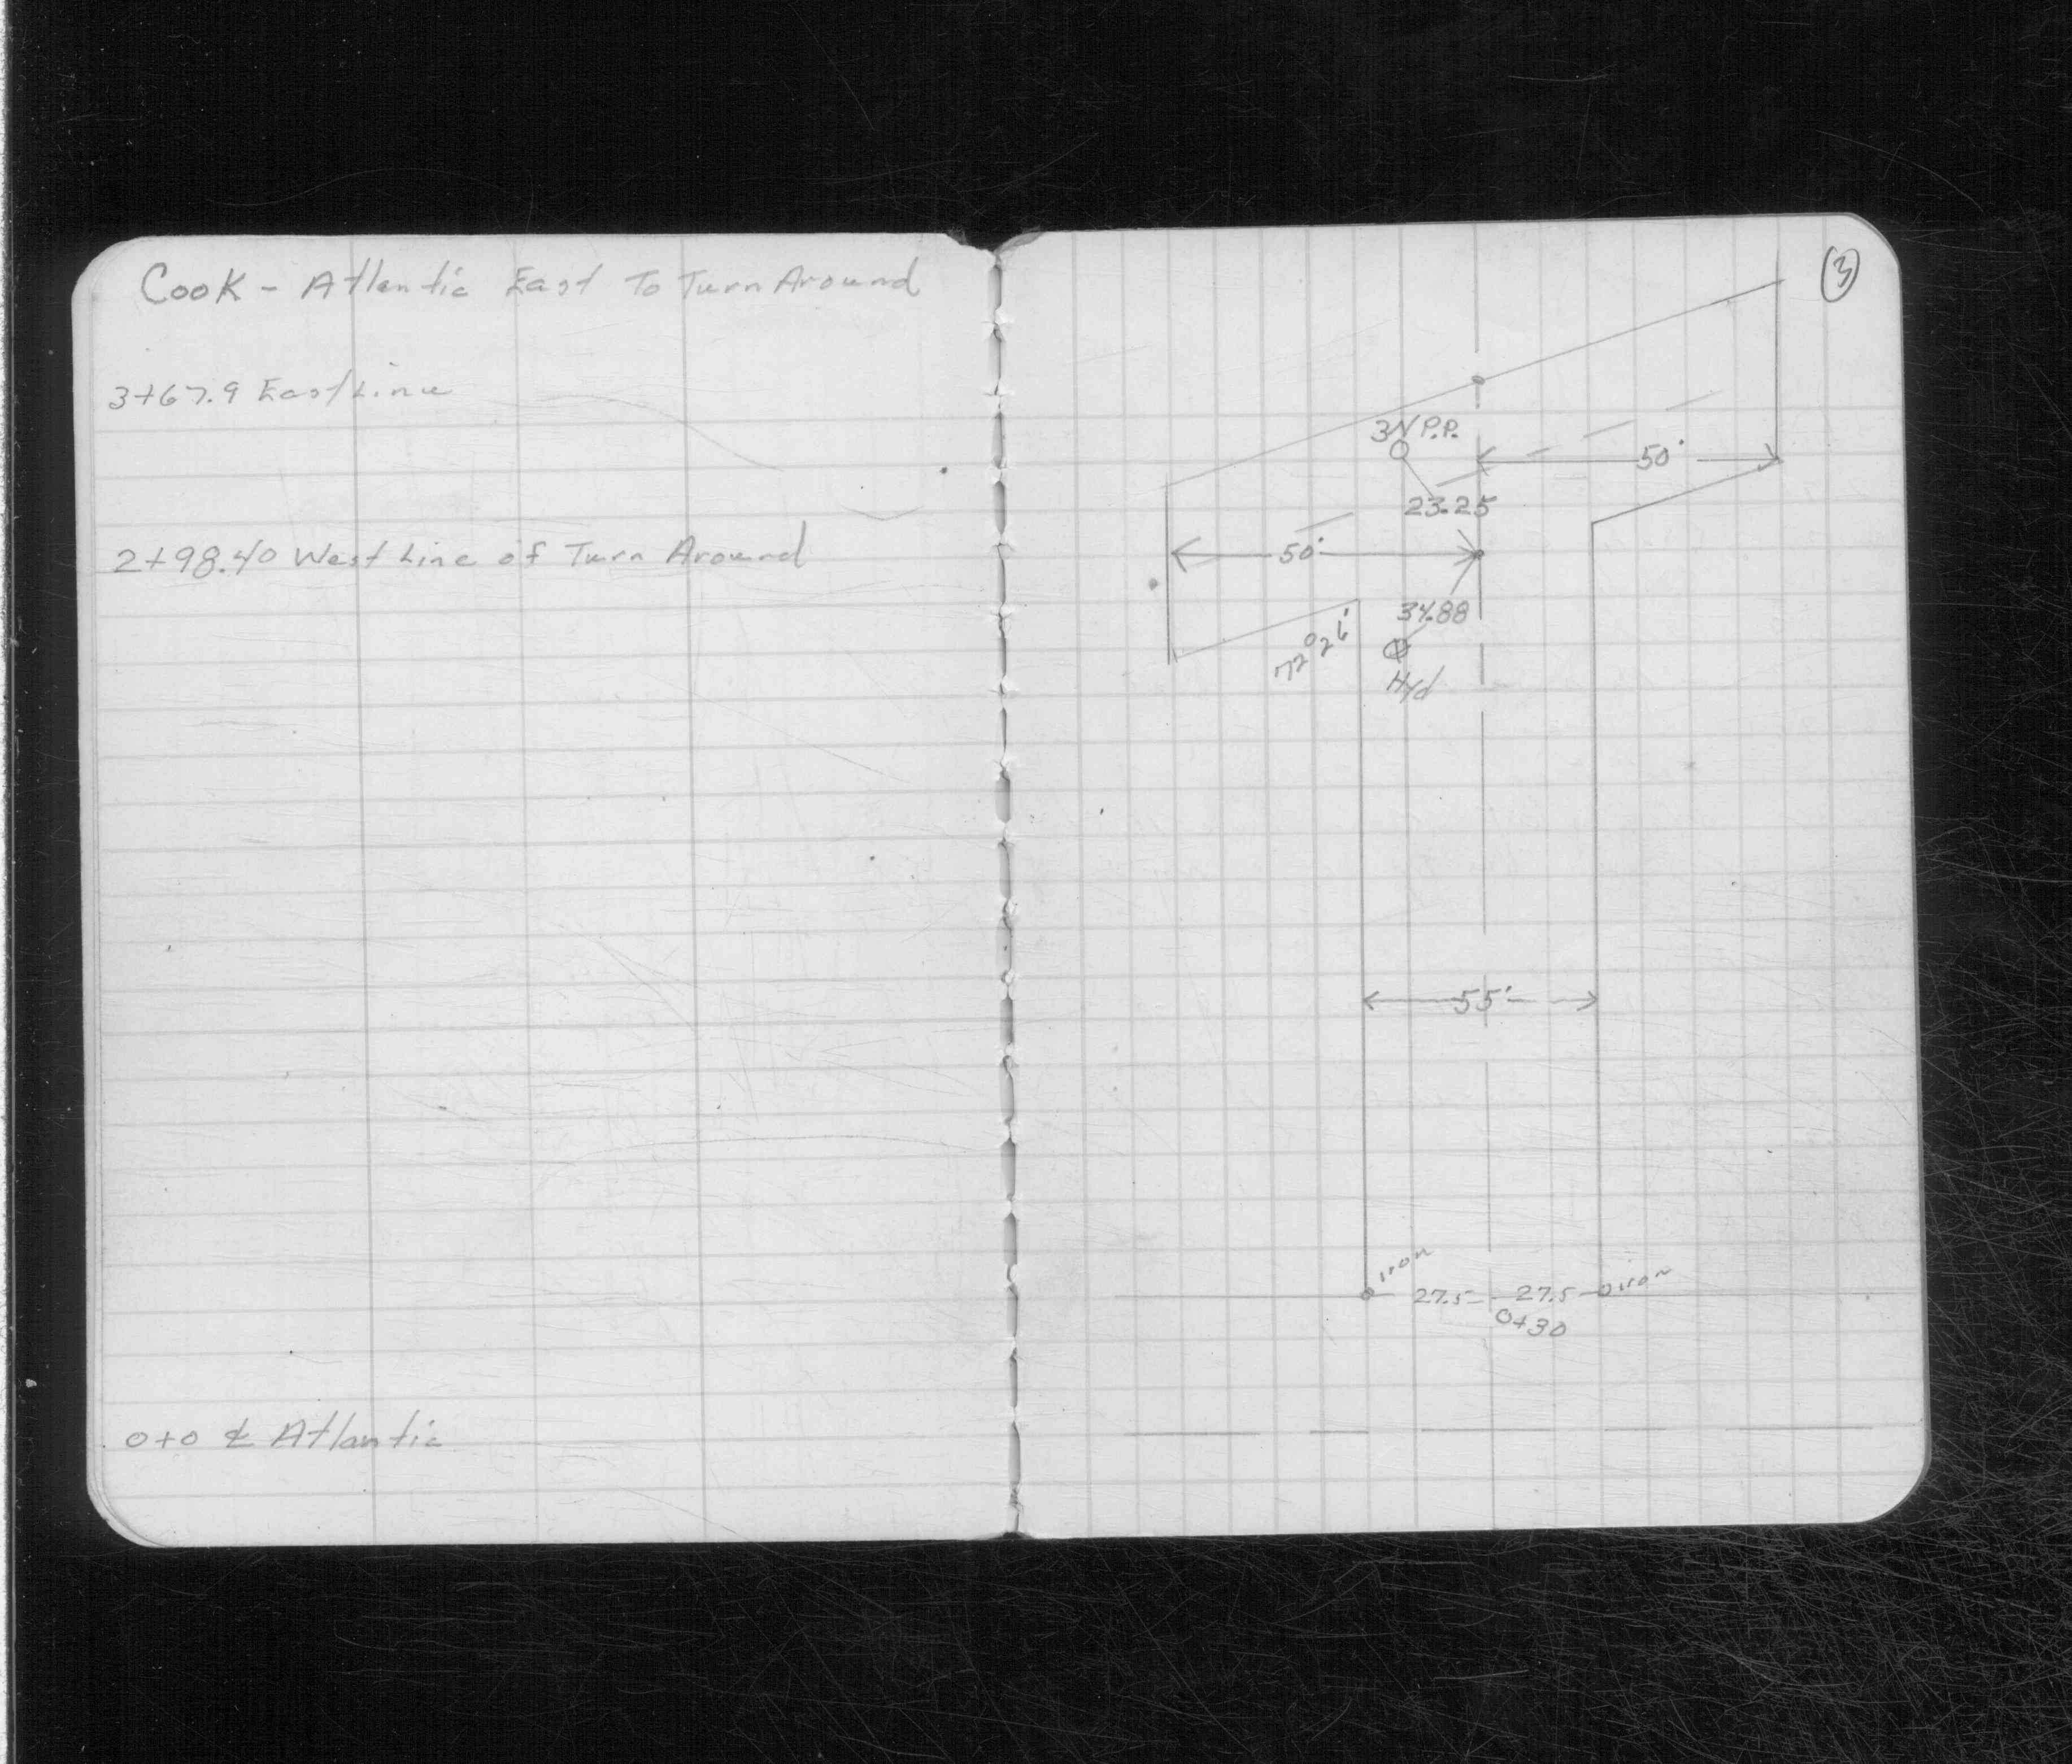 Cook - Atlantic East To Turn Around
3+67.9 East Line
2+98.40 West Line of Turn Around
0+0 ⅊ Atlantic
3
3N P.P.
50'
23.25
50'
34.88
72°26'
Hyd
55'
iron
27.5 27.5 iron
0+30